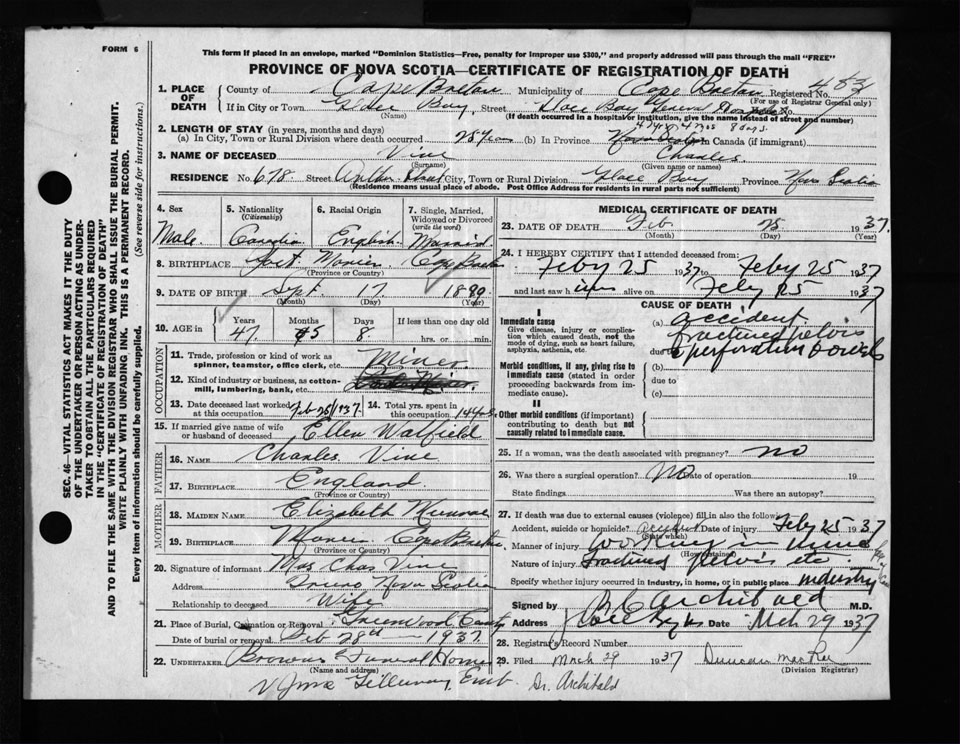 FORM 6
This form if placed in an envelope, marked "Dominion Statistics—Free, penalty for improper use $300," and properly addressed will pass through the mail "FREE"
PROVINCE OF NOVA SCOTIA—CERTIFICATE OF REGISTRATION OF DEATH
SEC. 46—VITAL STATISTICS ACT MAKES IT THE DUTY
OF THE UNDERTAKER OR PERSON ACTING AS UNDER-
TAKER TO OBTAIN ALL THE PARTICULARS REQUIRED
IN THE "CERTIFICATE OF REGISTRATION OF DEATH"
AND TO FILE THE SAME WITH THE DIVISION REGISTRAR WHO SHALL ISSUE THE BURIAL PERMIT.
WRITE PLAINLY WITH UNFADING INK. THIS IS A PERMANENT RECORD.
Every item of information should be carefully supplied. (See reverse side for instructions.)
1. PLACE OF DEATH County of Cape Breton Municipality of Cape Breton Registered No.
(For use of Registrar General only)
If in City or Town Glace Bay, Street Glace Bay General No.
(Name) (If death occurred in a hospital or institution, give the name instead of street and number)
2. LENGTH OF STAY (in years, months and days) 8 days.
(a) In City, Town or Rural Division where death occurred (b) In Province in Canada (if immigrant)
3. NAME OF DECEASED Vine Charles
(Surname) (Given name or names)
RESIDENCE No. 678 Street City, Town or Rural Division Glace Bay Province Nova Scotia
(Residence means usual place of abode. Post Office Address for residents in rural parts not sufficient)
4. Sex 5. Nationality 6. Racial Origin 7. Single, Married, Widowed or Divorced
(Citizenship) (write the word)
Male. English Married.
8. BIRTHPLACE Cape Breton
(Province or Country)
9. DATE OF BIRTH Sept. 17
(Month) (Day) (Year)
10. AGE in Years Months Days If less than one day old
47. 5 8. hrs. or min.
OCCUPATION
11. Trade, profession or kind of work as spinner, teamster, office clerk, etc. Miner
12. Kind of industry or business, as cotton-mill, lumbering, bank, etc.
13. Date deceased last worked at this occupation Feb 25/1937. 14. Total yrs. spent in this occupation
15. If married give name of wife or husband of deceased Ellen
FATHER
16. NAME Charles Vine
17. BIRTHPLACE England
(Province or Country)
MOTHER
18. MAIDEN NAME Elizabeth
19. BIRTHPLACE Cape Breton
(Province or Country)
20. Signature of informant Mrs Chas Vine
Address Nova Scotia
Relationship to deceased Wife
21. Place of Burial, Cremation or Removal Greenwood
Date of burial or removal Feb 28th 1937
22. UNDERTAKER Browns Funeral Home
(Name and address)
MEDICAL CERTIFICATE OF DEATH
23. DATE OF DEATH Feb. 25 1937.
(Month) (Day) (Year)
24. I HEREBY CERTIFY that I attended deceased from:
Feby 25 1937 to Feby 25 1937
and last saw h alive on Feby 25 1937
CAUSE OF DEATH
I
Immediate cause
Give disease, injury or complication which caused death, not the mode of dying, such as heart failure, asphyxia, asthenia, etc.
(a) accident
fractured pelvis
due to & perforation bowels
Morbid conditions, if any, giving rise to immediate cause (stated in order proceeding backwards from immediate cause).
(b)
due to
(c)
II
Other morbid conditions (if important) contributing to death but not causally related to immediate cause.
25. If a woman, was the death associated with pregnancy? no
26. Was there a surgical operation? No Date of operation 19
State findings Was there an autopsy?
27. If death was due to external causes (violence) fill in also the following:
Accident, suicide or homicide? accident Date of injury Feby 25 1937
(State which)
Manner of injury working in mine
Nature of injury Fractured Pelvis etc
Specify whether injury occurred in industry, in home, or in public place industry
Signed by Archibald M.D.
Address Date Mch 29 1937
28. Registrar's Record Number
29. Filed March 29 1937 Duncan MacRae
(Division Registrar)
Dr. Archibald